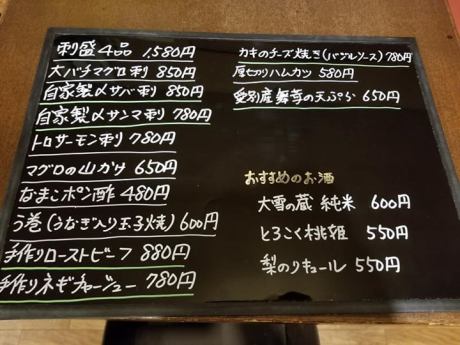 刺盛4品 1,580円
大バチマグロ刺 850円
自家製〆サバ刺 850円
自家製〆サンマ刺 780円
トロサーモン刺 780円
マグロの山かけ 650円
なまこポン酢 480円
う巻(うなぎ入り玉子焼) 600円
手作りローストビーフ 880円
手作りネギチャーシュー 780円
カキのチーズ焼き(バジルソース) 780円
厚切りハムカツ 580円
愛別産舞茸の天ぷら 650円
おすすめのお酒
大雪の蔵 純米 600円
とろこく桃姫 550円
梨のリキュール 550円